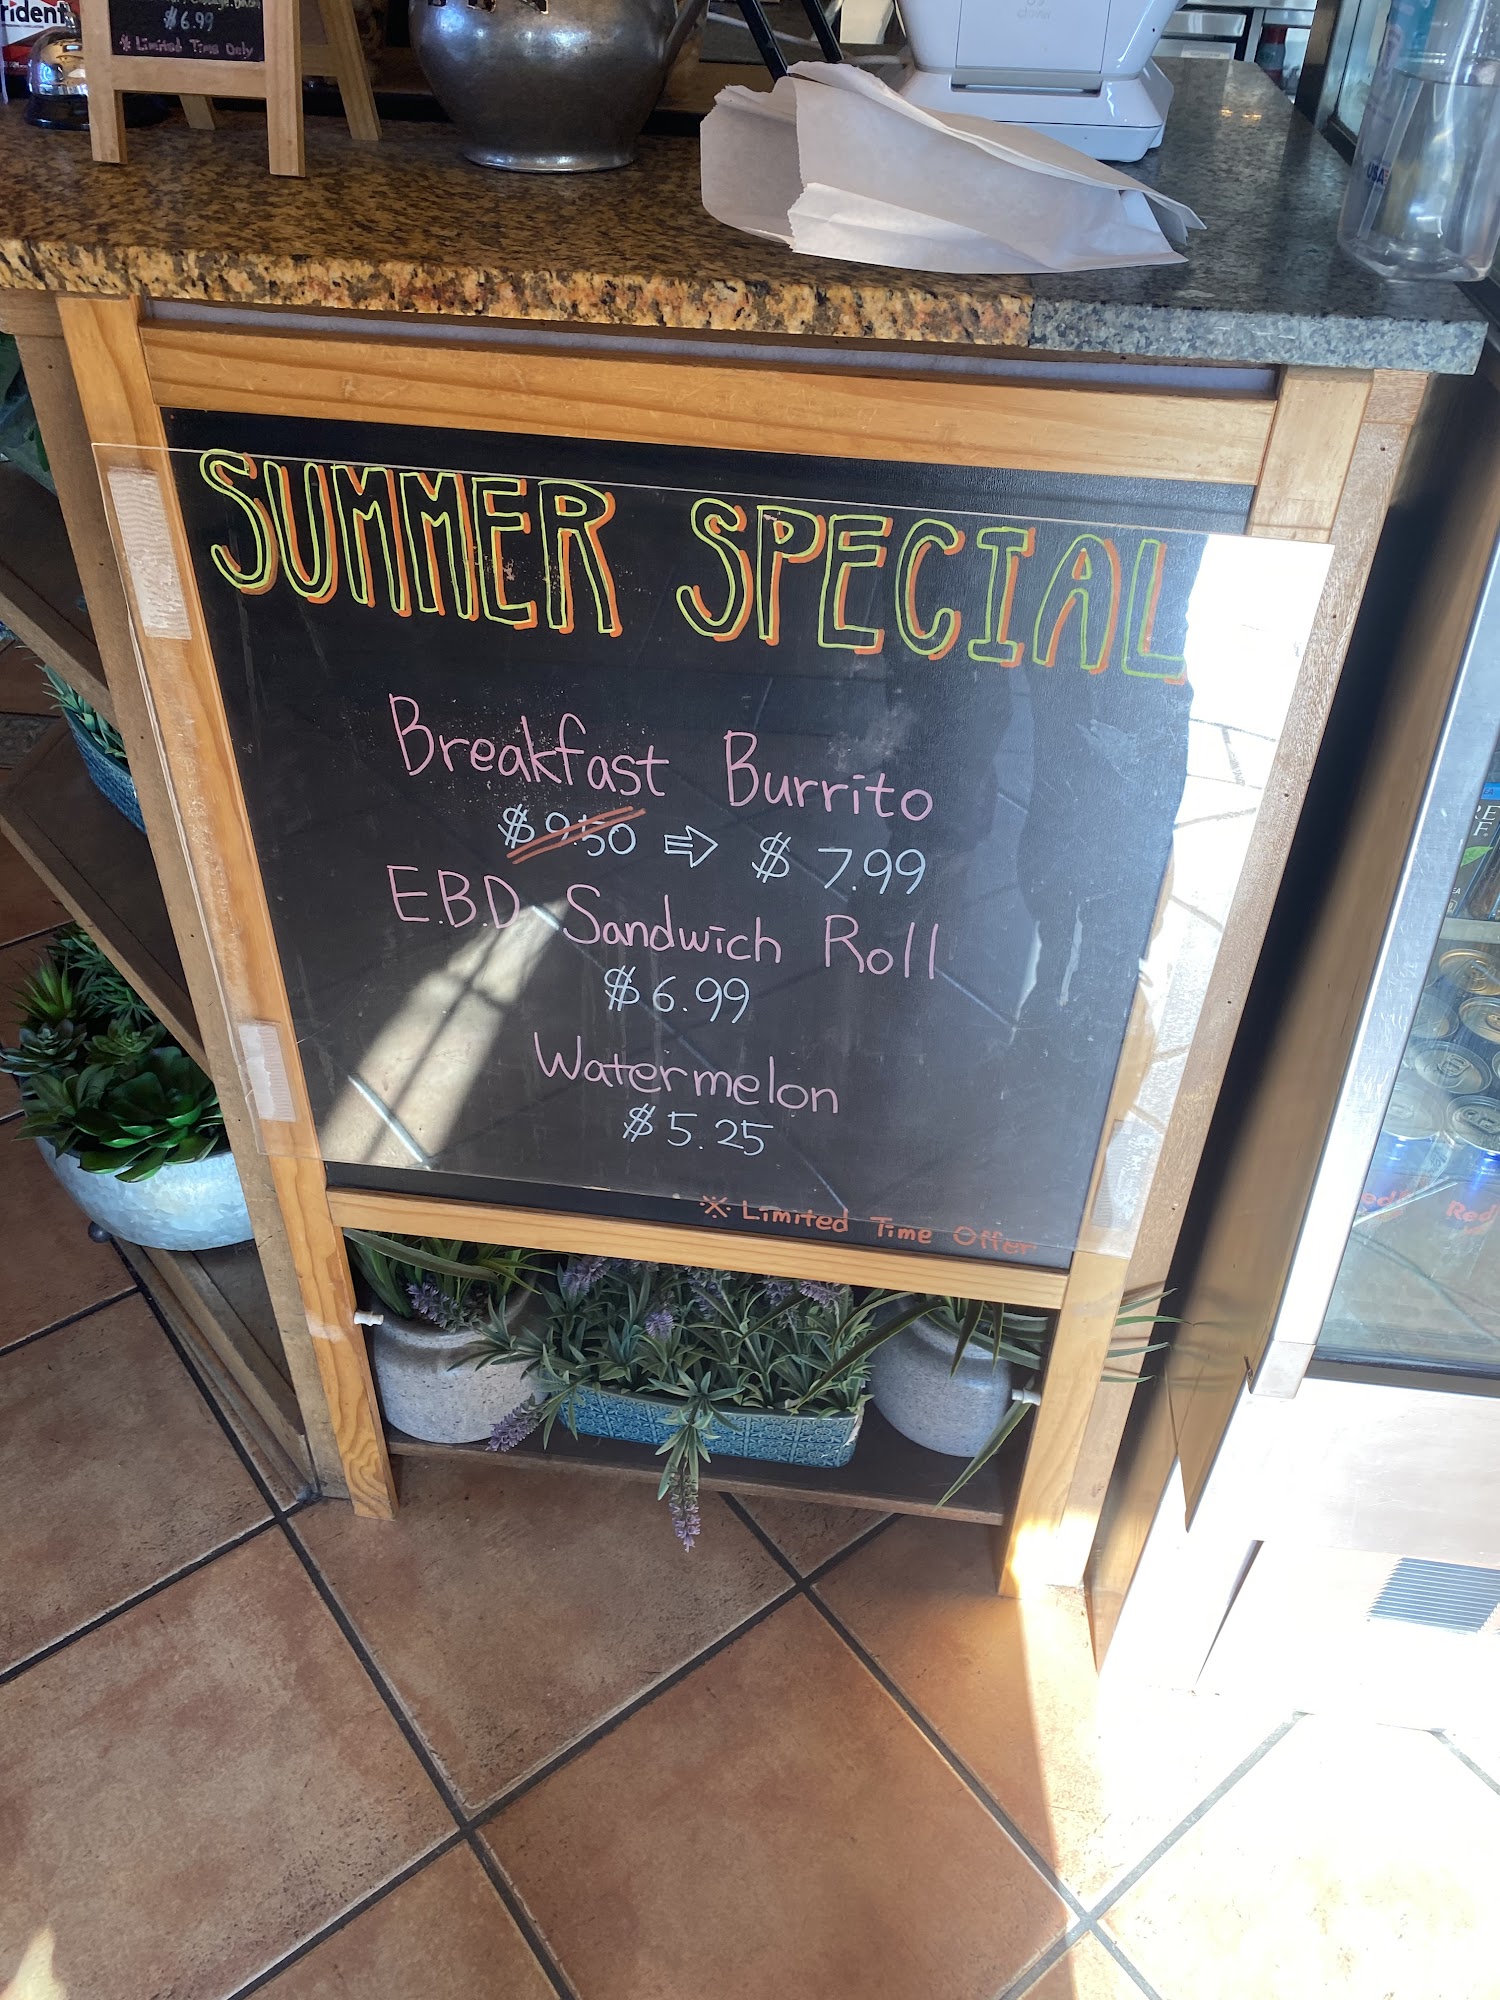 $6.99
※ Limited Time Only
SUMMER SPECIAL
Breakfast Burrito
$9.50 ⇨ $7.99
E.B.D Sandwich Roll
$6.99
Watermelon
$5.25
※ Limited Time Offer
USA
Red